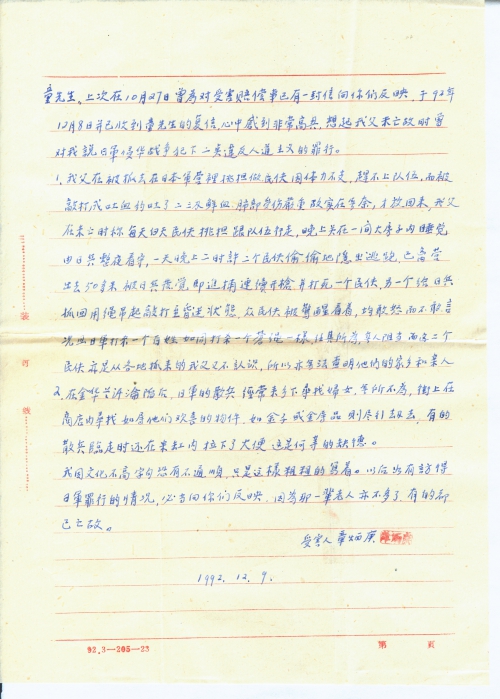 童先生、上次在10月27日曾为对受害赔偿事已有一封信向你们反映，于92年
12月8日并已收到童先生的复信，心中感到非常高兴，想起我父未亡故时曾
对我说日军侵华战争犯下二类违反人道主义的罪行。
1、我父在被抓去在日本军营裡挑担做民伕因体力不支，趕不上队伍，而被
敲打成吐血约吐了二三次鲜血 肺部受伤严重 故实在 才放回来，我父
在未亡时称每天白天民伕挑担跟队伍行走，晚上关在一间大房子内睡觉
由日兵整夜看守，一天晚上二时許二个民伕偷偷地 出逃跑，已离营
出去50多米被日兵发觉即追捕連续开槍并打死一个民伕，另一个给日兵
抓回用绳吊起敲打直留送状態，众民伕被驚醒看着，均敢怒而不敢言
况且日军打死一个百姓如同打死一个苍蝇一样，任其所为，无人阻当而这二个
民伕亦是从各地抓来的我父又不认识，所以亦无法查明他们的家乡和亲人
又、在金华兰谿沦陷后，日军的散兵经常来乡下尋找妇女，无所不为，街上在
商店内尋找如属他们欢喜的物件，如金子或金属品则尽行敲去，有的
散兵臨走时还在米缸内拉下了大便这是何等的缺德。
我因文化不高字句恐有不通顺，只是这樣粗粗的写着。以后如有訪得
日軍罪行的情况，必当向你们反映，因为那一輩老人亦不多了有的都
已亡故。
受害人 章炳庚
1992.12.9.
装订线
92.3—205—23
第 頁